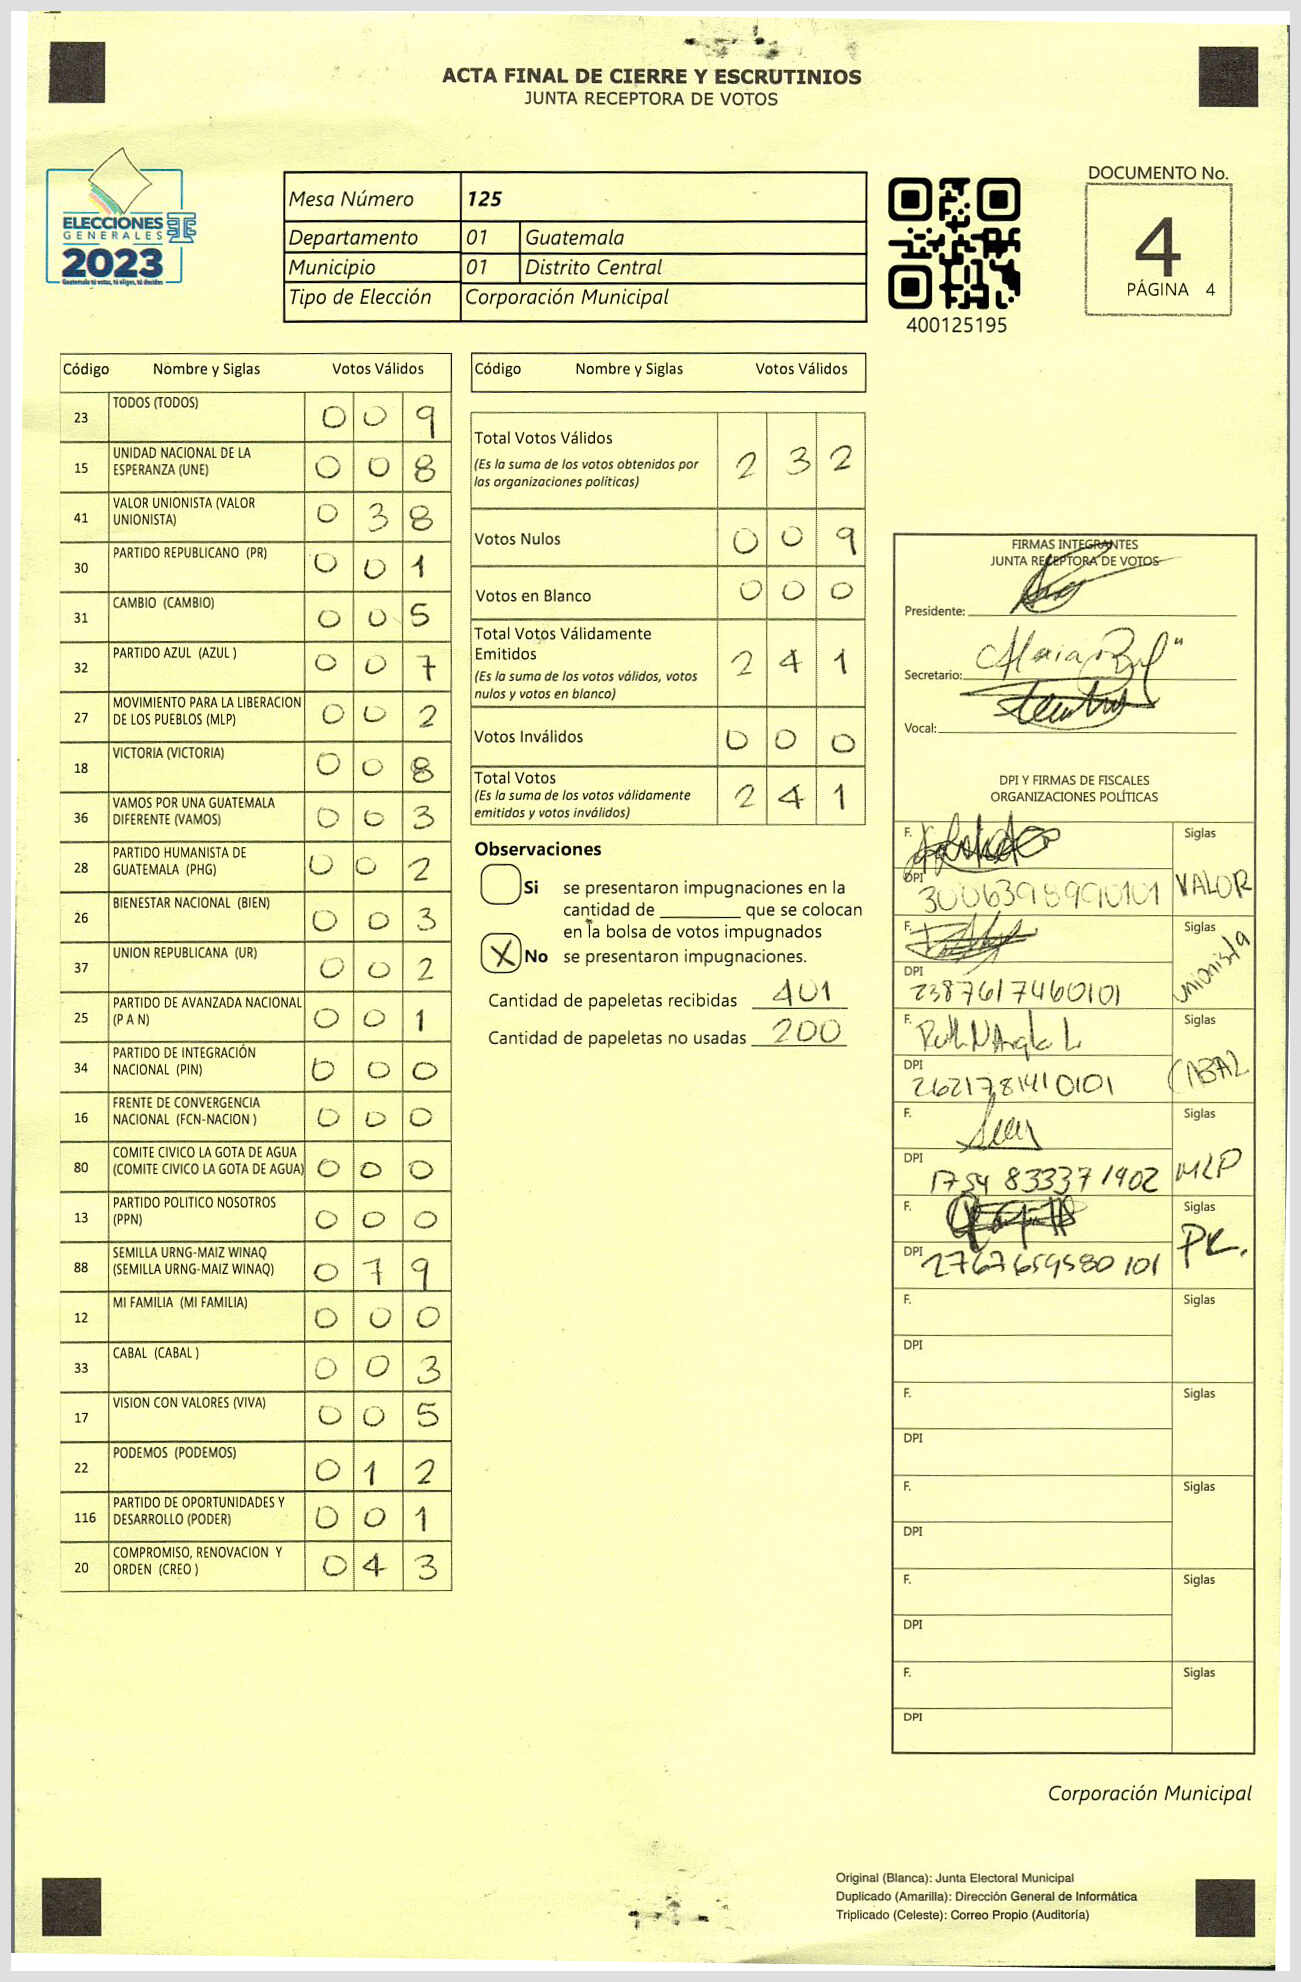 ACTA FINAL DE CIERRE Y ESCRUTINIOS
JUNTA RECEPTORA DE VOTOS
ELECCIONES
GENERALES
2023
Guatemala tú votas, tú eliges, tú decides
Mesa Número 125
Departamento 01 Guatemala
Municipio 01 Distrito Central
Tipo de Elección Corporación Municipal
400125195
DOCUMENTO No.
4
PÁGINA 4
Código Nombre y Siglas Votos Válidos
23 TODOS (TODOS) 0 0 9
15 UNIDAD NACIONAL DE LA ESPERANZA (UNE) 0 0 8
41 VALOR UNIONISTA (VALOR UNIONISTA) 0 3 8
30 PARTIDO REPUBLICANO (PR) 0 0 1
31 CAMBIO (CAMBIO) 0 0 5
32 PARTIDO AZUL (AZUL ) 0 0 7
27 MOVIMIENTO PARA LA LIBERACION DE LOS PUEBLOS (MLP) 0 0 2
18 VICTORIA (VICTORIA) 0 0 8
36 VAMOS POR UNA GUATEMALA DIFERENTE (VAMOS) 0 0 3
28 PARTIDO HUMANISTA DE GUATEMALA (PHG) 0 0 2
26 BIENESTAR NACIONAL (BIEN) 0 0 3
37 UNION REPUBLICANA (UR) 0 0 2
25 PARTIDO DE AVANZADA NACIONAL (P A N) 0 0 1
34 PARTIDO DE INTEGRACIÓN NACIONAL (PIN) 0 0 0
16 FRENTE DE CONVERGENCIA NACIONAL (FCN-NACION ) 0 0 0
80 COMITE CIVICO LA GOTA DE AGUA (COMITE CIVICO LA GOTA DE AGUA) 0 0 0
13 PARTIDO POLITICO NOSOTROS (PPN) 0 0 0
88 SEMILLA URNG-MAIZ WINAQ (SEMILLA URNG-MAIZ WINAQ) 0 7 9
12 MI FAMILIA (MI FAMILIA) 0 0 0
33 CABAL (CABAL ) 0 0 3
17 VISION CON VALORES (VIVA) 0 0 5
22 PODEMOS (PODEMOS) 0 1 2
116 PARTIDO DE OPORTUNIDADES Y DESARROLLO (PODER) 0 0 1
20 COMPROMISO, RENOVACION Y ORDEN (CREO ) 0 4 3
Código Nombre y Siglas Votos Válidos
Total Votos Válidos 2 3 2
(Es la suma de los votos obtenidos por
las organizaciones políticas)
Votos Nulos 0 0 9
Votos en Blanco 0 0 0
Total Votos Válidamente
Emitidos 2 4 1
(Es la suma de los votos válidos, votos
nulos y votos en blanco)
Votos Inválidos 0 0 0
Total Votos 2 4 1
(Es la suma de los votos válidamente
emitidos y votos inválidos)
Observaciones
Si se presentaron impugnaciones en la
cantidad de ________ que se colocan
en la bolsa de votos impugnados
X No se presentaron impugnaciones.
Cantidad de papeletas recibidas 401
Cantidad de papeletas no usadas 200
FIRMAS INTEGRANTES
JUNTA RECEPTORA DE VOTOS
Presidente:
Secretario:
Vocal:
DPI Y FIRMAS DE FISCALES
ORGANIZACIONES POLÍTICAS
F. Siglas
DPI 3006398990101 VALOR
F. Siglas
DPI 2387617460101 Unionista
F. Siglas
DPI 2621781410101 CABAL
F. Siglas
DPI 1754 83337 1902 MLP
F. Siglas
DPI 2767659580 101
F. Siglas
DPI
F. Siglas
DPI
F. Siglas
DPI
F. Siglas
DPI
F. Siglas
DPI
Corporación Municipal
Original (Blanca): Junta Electoral Municipal
Duplicado (Amarilla): Dirección General de Informática
Triplicado (Celeste): Correo Propio (Auditoría)